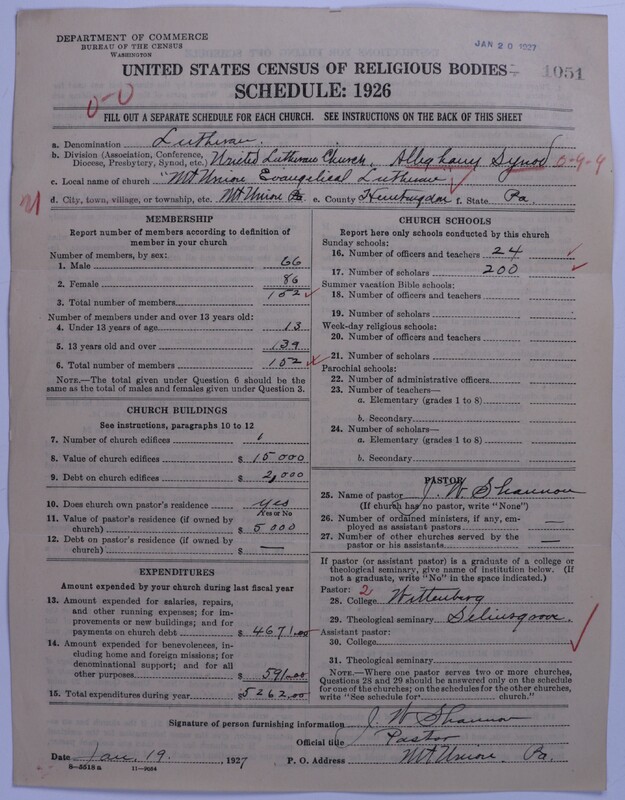 DEPARTMENT OF COMMERCE
BUREAU OF THE CENSUS
WASHINGTON
JAN 20 1927
UNITED STATES CENSUS OF RELIGIOUS BODIES
1051
SCHEDULE: 1926
0-0
FILL OUT A SEPARATE SCHEDULE FOR EACH CHURCH. SEE INSTRUCTIONS ON THE BACK OF THIS SHEET
a. Denomination Lutheran.
b. Division (Association, Conference, Diocese, Presbytery, Synod, etc.) United Lutheran Church, Alleghany Synod 0-9-9
c. Local name of church "Mt Union Evangelical Lutheran
d. City, town, village, or township, etc. Mt Union Pa e. County Huntingdon f. State Pa.
21
MEMBERSHIP
Report number of members according to definition of
member in your church
Number of members, by sex:
1. Male 66
2. Female 86
3. Total number of members 152
Number of members under and over 13 years old:
4. Under 13 years of age 13
5. 13 years old and over 139
6. Total number of members 152
NOTE.—The total given under Question 6 should be
same as the total of males and females given under Question 3.
CHURCH BUILDINGS
See instructions, paragraphs 10 to 12
7. Number of church edifices 1
8. Value of church edifices $ 15000
9. Debt on church edifices $ 2,000
10. Does church own pastor's residence? yes
Yes or No
11. Value of pastor's residence (if owned by
church) $ 5000
12. Debt on pastor's residence (if owned by
church) $ —
EXPENDITURES
Amount expended by your church during last fiscal year
13. Amount expended for salaries, repairs,
and other running expenses; for im-
provements or new buildings; and for
payments on church debt $ 4671.00
14. Amount expended for benevolences, in-
cluding home and foreign missions; for
denominational support; and for all
other purposes $ 591.00
15. Total expenditures during year $5262.00
CHURCH SCHOOLS
Report here only schools conducted by this church
Sunday schools:
16. Number of officers and teachers 24
17. Number of scholars 200
Summer vacation Bible schools:
18. Number of officers and teachers
19. Number of scholars
Week-day religious schools:
20. Number of officers and teachers
21. Number of scholars
Parochial schools:
22. Number of administrative officers
23. Number of teachers—
a. Elementary (grades 1 to 8)
b. Secondary
24. Number of scholars—
a. Elementary (grades 1 to 8)
b. Secondary
PASTOR
25. Name of pastor J. W Shannon
(If church has no pastor, write "None")
26. Number of ordained ministers, if any, em-
ployed as assistant pastors
27. Number of other churches served by the
pastor or his assistants
If pastor (or assistant pastor) is a graduate of a college or
theological seminary, give name of institution below. (If
not a graduate, write "No" in the space indicated.)
Pastor: 2
28. College Wittenberg
29. Theological seminary Selinsgrove.
Assistant pastor:
30. College
31. Theological seminary
NOTE.—Where one pastor serves two or more churches,
Questions 28 and 29 should be answered only on the schedule
for one of the churches; on the schedules for the other churches,
write "See schedule for church."
Signature of person furnishing information J. W Shannon
Official title Pastor
Date Jan. 19. 1927 P. O. Address Mt Union Pa.
8—5518a 11—9054